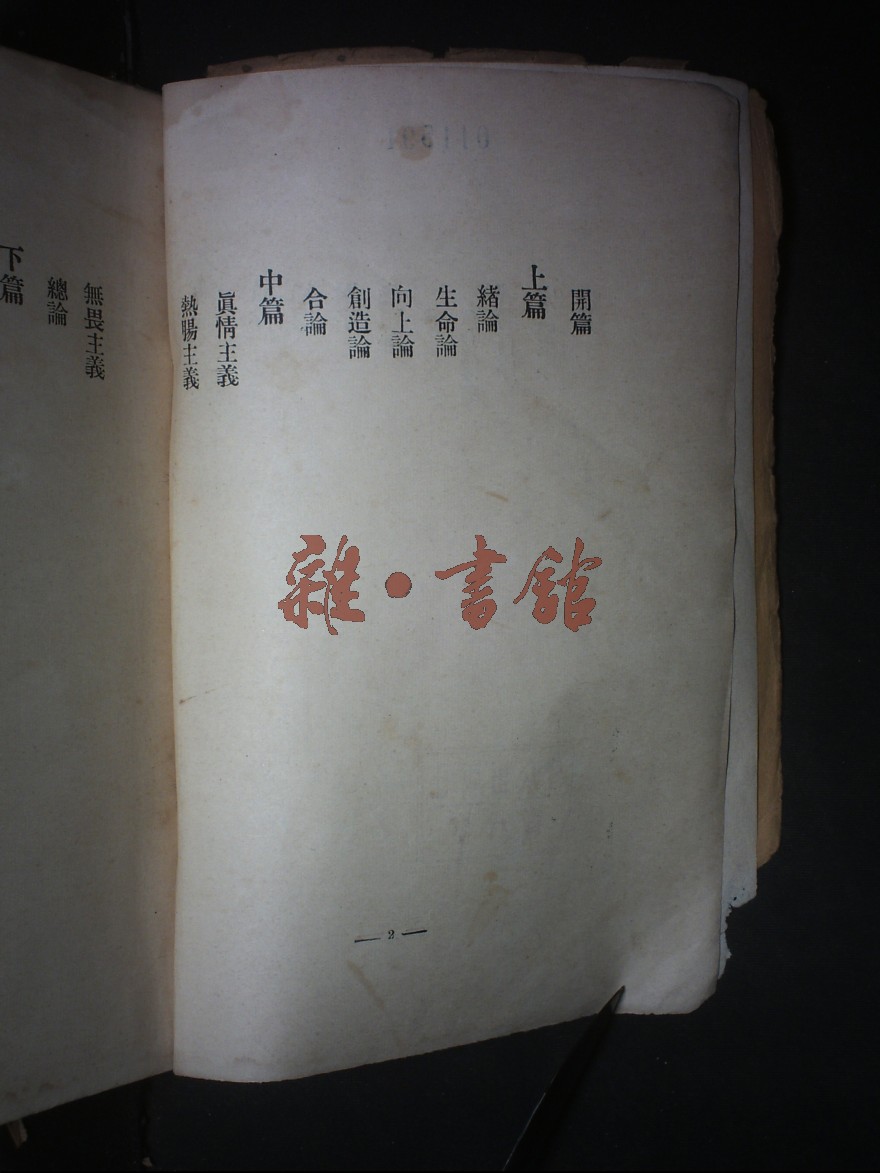 開篇
上篇
緒論
生命論
向上論
創造論
合論
中篇
眞情主義
熱腸主義
無畏主義
總論
下篇
2
雜·書館